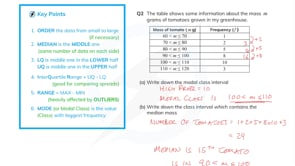 Key Points
1. ORDER the data from small to large
(if necessary)
2. MEDIAN is the MIDDLE one
(same number of data on each side)
3. LQ is middle one in the LOWER half
UQ is middle one in the UPPER half
4. InterQuartile Range = UQ - LQ
(good for comparing spreads)
5. RANGE = MAX - MIN
(heavily affected by OUTLIERS)
6. MODE (or Modal Class) is the VALUE
(Class) with biggest frequency
Q2 The table shows some information about the mass m
grams of tomatoes grown in my greenhouse.
Mass of tomato (m g) Frequency (f)
60 < m ≤ 70 1
70 < m ≤ 80 2
80 < m ≤ 90 5
90 < m ≤ 100 8
100 < m ≤ 110 10
110 < m ≤ 120 3
(a) Write down the modal class interval
HIGH FREQ = 10
MODAL CLASS IS 100 < m ≤ 110
(b) Write down the class interval which contains the
median mass
NUMBER OF TOMATOES = 1+2+5+8+10+3
= 29
MEDIAN IS 15TH TOMATO
IS IN 90 < m ≤ 100